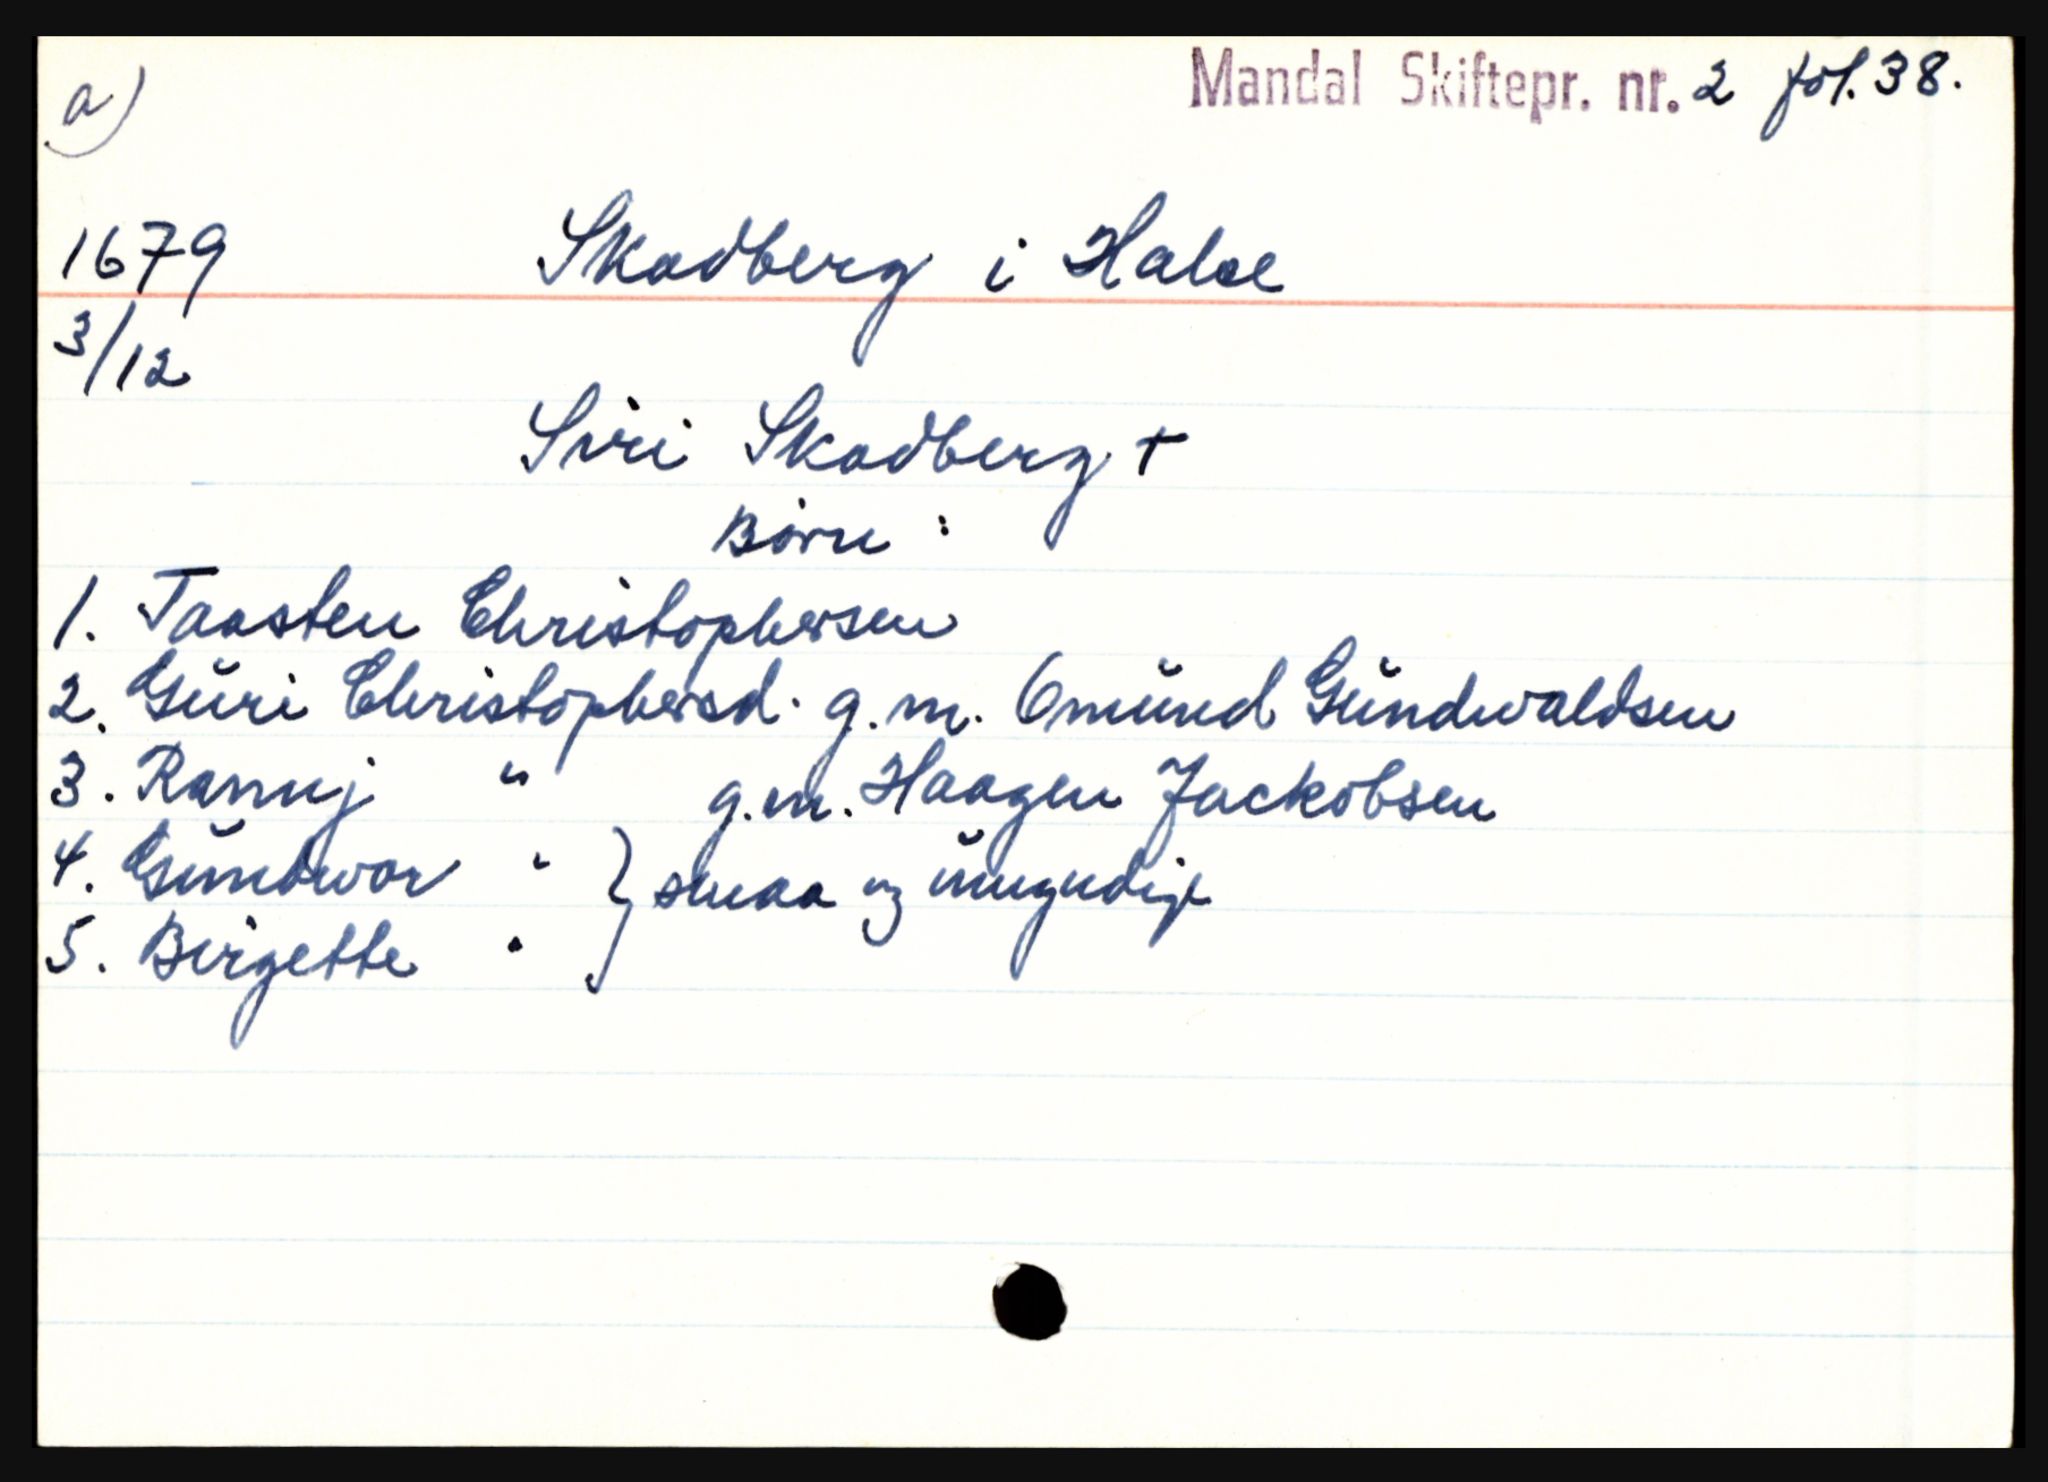 a)
Mandal Skiftepr. nr. 2 fol. 38.
1679 Skadberg i Halse
3/12
Siri Skadberg +
Børn :
1. Taasten Christophersen
2. Guri Christophersd. g.m. Omund Gundwaldsen
3. Rannj " g.m. Haagen Jackobsen
4. Gundwor " } smaa og umyndige
5. Birgette "